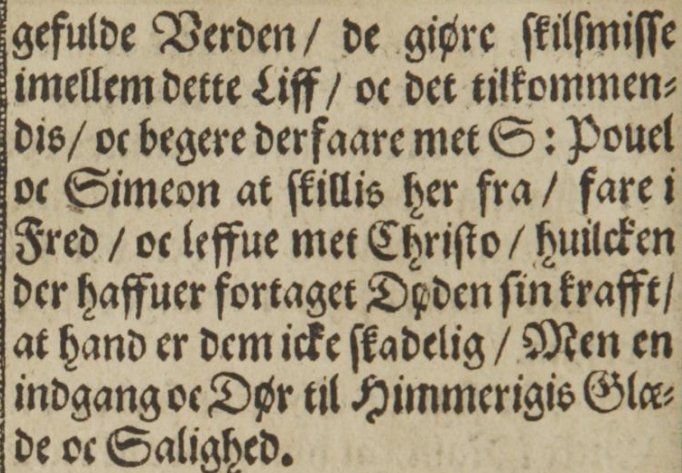 gefulde Verden / de giøre skilsmisse
imellem dette Liff / oc det tilkommen-
dis / oc begere derfaare met S: Povel
oc Simeon at skillis her fra / fare i
Fred / oc leffue met Christo / huilcken
der haffuer fortaget Døden sin krafft /
at hand er dem icke skadelig / Men en
indgang oc Dør til Himmerigis Glæ-
de oc Salighed.